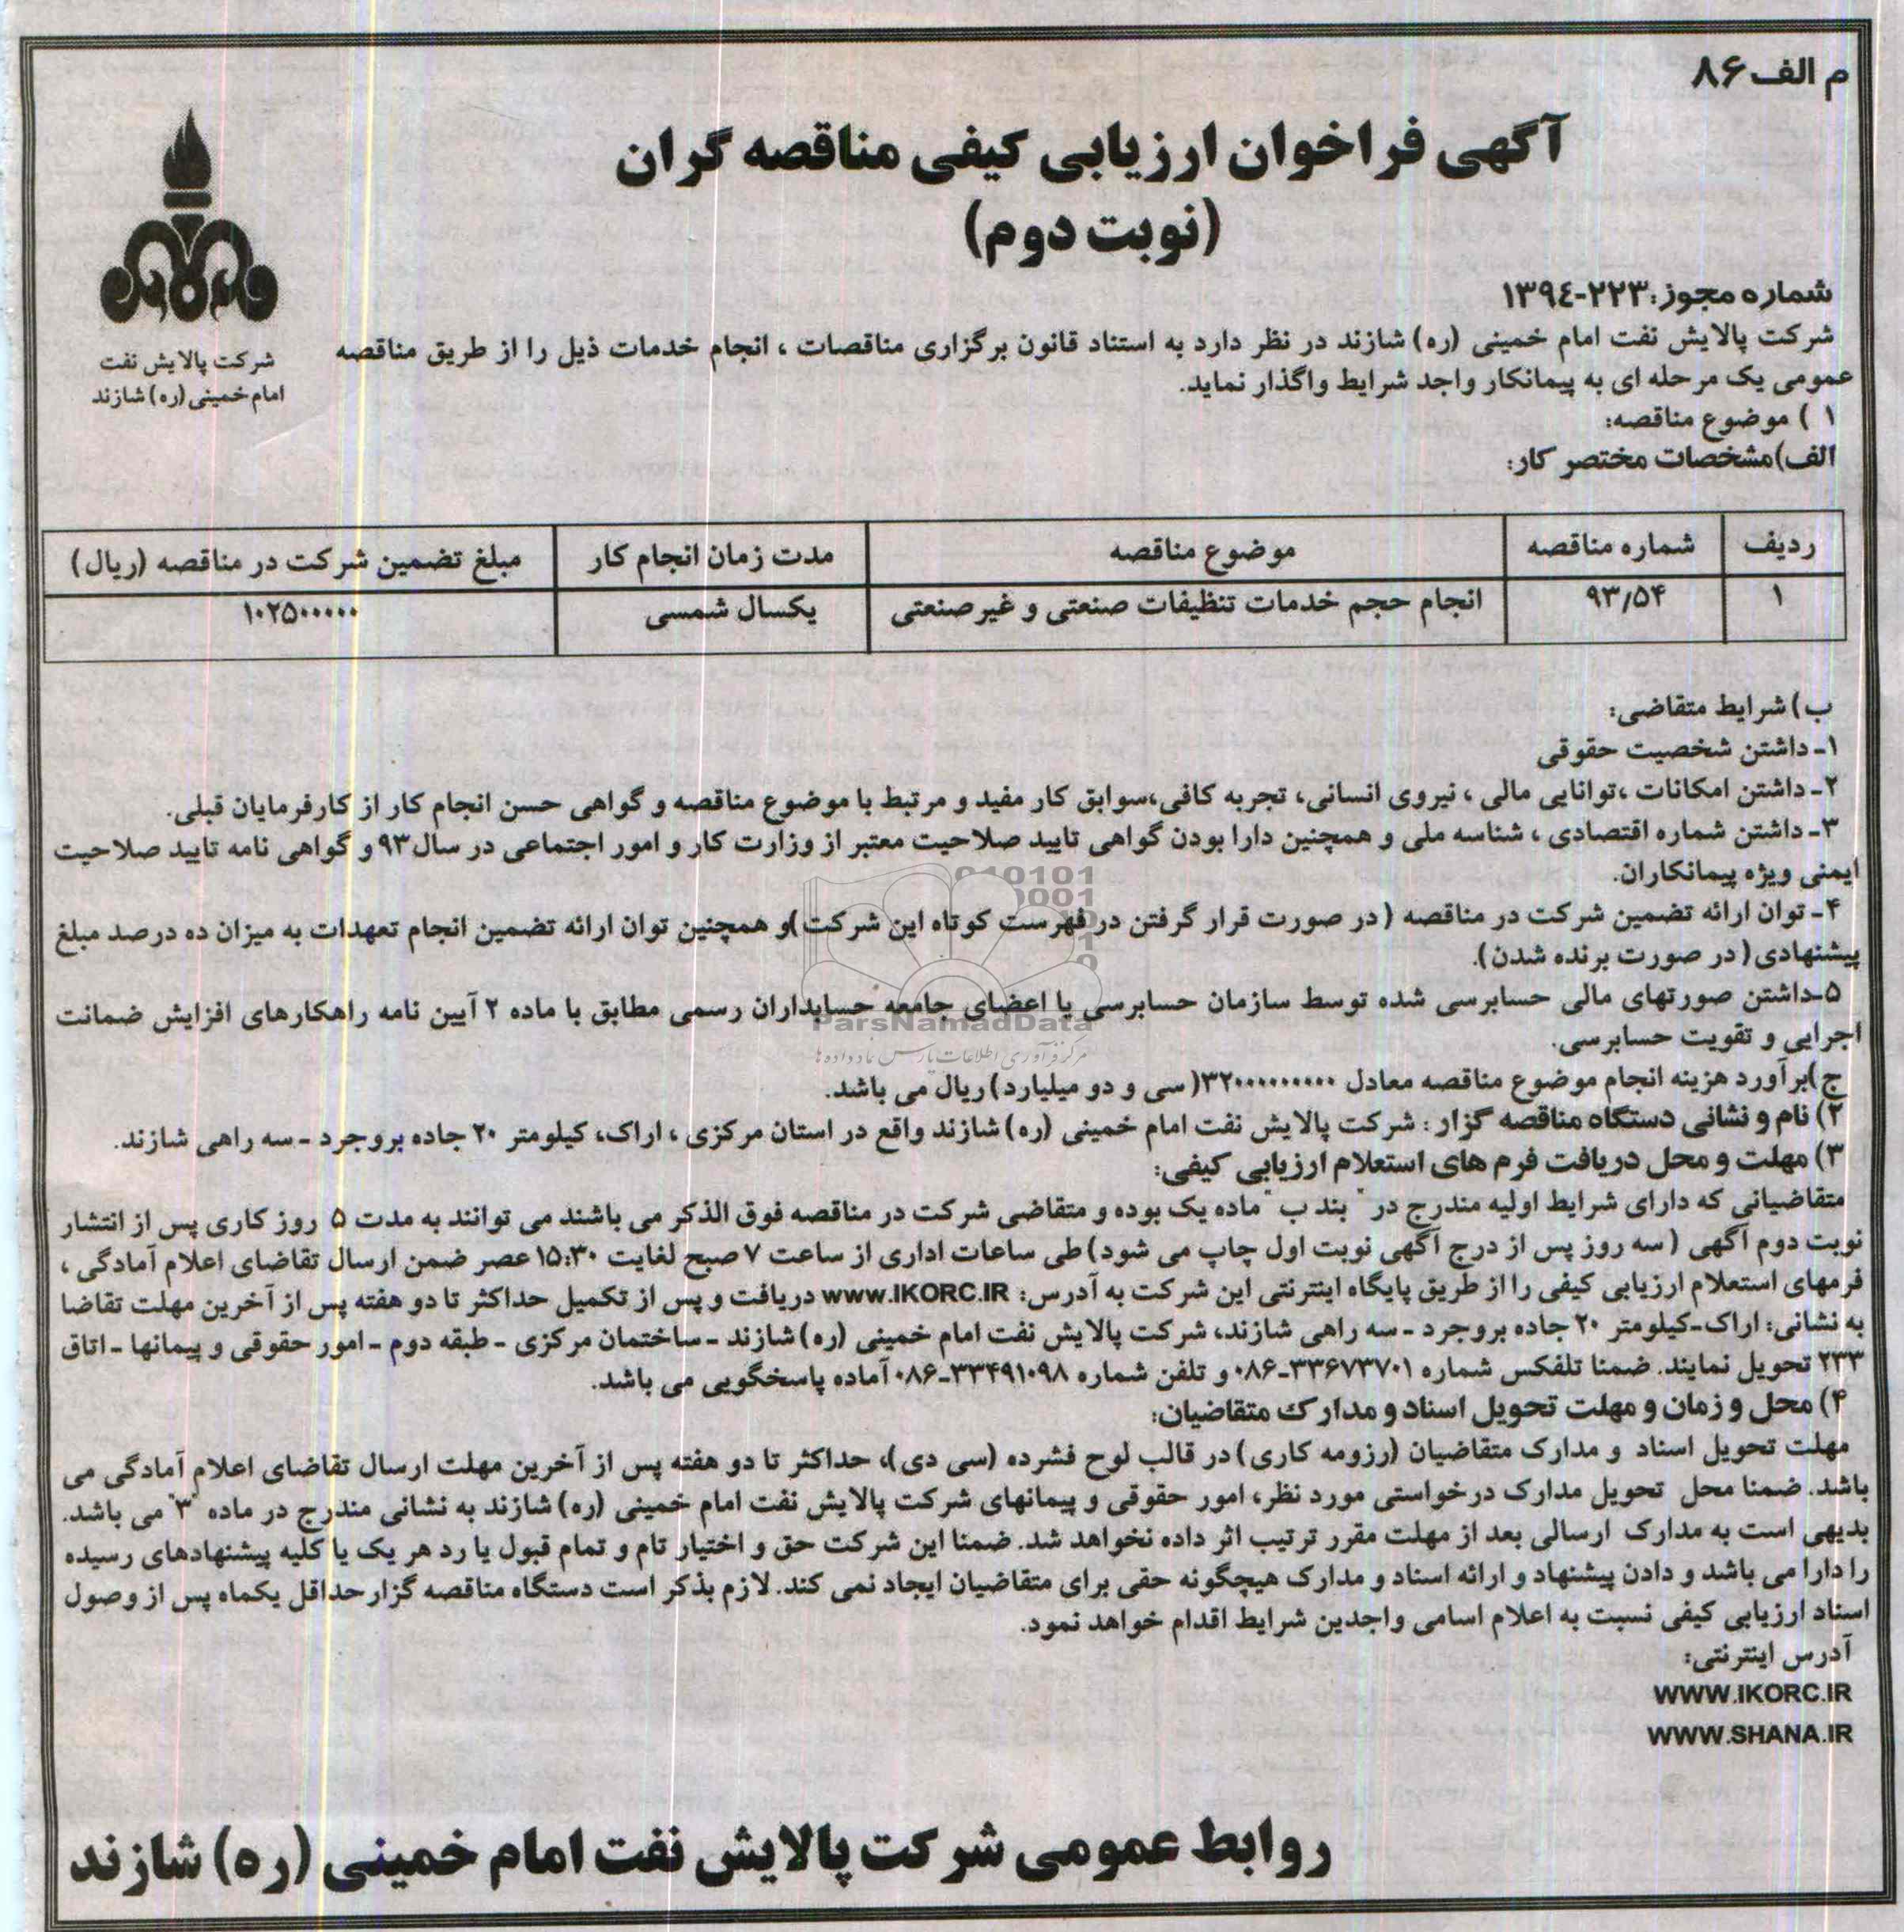 م الف ۸۶
آگهی فراخوان ارزیابی کیفی مناقصه گران
(نوبت دوم)
شرکت پالایش نفت
امام خمینی (ره) شازند
شماره مجوز: ۲۲۳-۱۳۹٤
شرکت پالایش نفت امام خمینی (ره) شازند در نظر دارد به استناد قانون برگزاری مناقصات ، انجام خدمات ذیل را از طریق مناقصه
عمومی یک مرحله ای به پیمانکار واجد شرایط واگذار نماید.
۱ ) موضوع مناقصه:
الف)مشخصات مختصر کار:
ردیف شماره مناقصه موضوع مناقصه مدت زمان انجام کار مبلغ تضمین شرکت در مناقصه (ریال)
۱ ۹۳/۵۴ انجام حجم خدمات تنظیفات صنعتی و غیرصنعتی یکسال شمسی ۱۰۲۵۰۰۰۰۰۰
ب) شرایط متقاضی:
۱- داشتن شخصیت حقوقی
۲- داشتن امکانات ،توانایی مالی ، نیروی انسانی، تجربه کافی،سوابق کار مفید و مرتبط با موضوع مناقصه و گواهی حسن انجام کار از کارفرمایان قبلی.
۳- داشتن شماره اقتصادی ، شناسه ملی و همچنین دارا بودن گواهی تایید صلاحیت معتبر از وزارت کار و امور اجتماعی در سال ۹۳ و گواهی نامه تایید صلاحیت
ایمنی ویژه پیمانکاران.
۴- توان ارائه تضمین شرکت در مناقصه ( در صورت قرار گرفتن در فهرست کوتاه این شرکت )و همچنین توان ارائه تضمین انجام تعهدات به میزان ده درصد مبلغ
پیشنهادی ( در صورت برنده شدن).
۵-داشتن صورتهای مالی حسابرسی شده توسط سازمان حسابرسی یا اعضای جامعه حسابداران رسمی مطابق با ماده ۲ آیین نامه راهکارهای افزایش ضمانت
اجرایی و تقویت حسابرسی.
ParsNamadData
مرکز فرآوری اطلاعات پارس نماد داده ها
ج)برآورد هزینه انجام موضوع مناقصه معادل ۳۲۰۰۰۰۰۰۰۰۰( سی و دو میلیارد) ریال می باشد.
۲) نام و نشانی دستگاه مناقصه گزار : شرکت پالایش نفت امام خمینی (ره) شازند واقع در استان مرکزی ، اراک، کیلومتر ۲۰ جاده بروجرد - سه راهی شازند.
۳) مهلت و محل دریافت فرم های استعلام ارزیابی کیفی:
متقاضیانی که دارای شرایط اولیه مندرج در " بند ب" ماده یک بوده و متقاضی شرکت در مناقصه فوق الذکر می باشند می توانند به مدت ۵ روز کاری پس از انتشار
نوبت دوم آگهی ( سه روز پس از درج آگهی نوبت اول چاپ می شود) طی ساعات اداری از ساعت ۷ صبح لغایت ۱۵:۳۰ عصر ضمن ارسال تقاضای اعلام آمادگی ،
فرمهای استعلام ارزیابی کیفی را از طریق پایگاه اینترنتی این شرکت به آدرس: www.IKORC.IR دریافت و پس از تکمیل حداکثر تا دو هفته پس از آخرین مهلت تقاضا
به نشانی: اراک-کیلومتر ۲۰ جاده بروجرد - سه راهی شازند، شرکت پالایش نفت امام خمینی (ره) شازند - ساختمان مرکزی - طبقه دوم - امور حقوقی و پیمانها - اتاق
۲۳۳ تحویل نمایند. ضمنا تلفکس شماره ۳۳۶۷۳۷۰۱-۰۸۶ و تلفن شماره ۳۳۴۹۱۰۹۸-۰۸۶ آماده پاسخگویی می باشد.
۴) محل و زمان و مهلت تحویل اسناد و مدارک متقاضیان:
مهلت تحویل اسناد و مدارک متقاضیان (رزومه کاری) در قالب لوح فشرده (سی دی)، حداکثر تا دو هفته پس از آخرین مهلت ارسال تقاضای اعلام آمادگی می
باشد. ضمنا محل تحویل مدارک درخواستی مورد نظر، امور حقوقی و پیمانهای شرکت پالایش نفت امام خمینی (ره) شازند به نشانی مندرج در ماده "۳" می باشد.
بدیهی است به مدارک ارسالی بعد از مهلت مقرر ترتیب اثر داده نخواهد شد. ضمنا این شرکت حق و اختیار تام و تمام قبول یا رد هر یک یا کلیه پیشنهادهای رسیده
را دارا می باشد و دادن پیشنهاد و ارائه اسناد و مدارک هیچگونه حقی برای متقاضیان ایجاد نمی کند. لازم بذکر است دستگاه مناقصه گزار حداقل یکماه پس از وصول
اسناد ارزیابی کیفی نسبت به اعلام اسامی واجدین شرایط اقدام خواهد نمود.
آدرس اینترنتی:
WWW.IKORC.IR
WWW.SHANA.IR
روابط عمومی شرکت پالایش نفت امام خمینی (ره) شازند